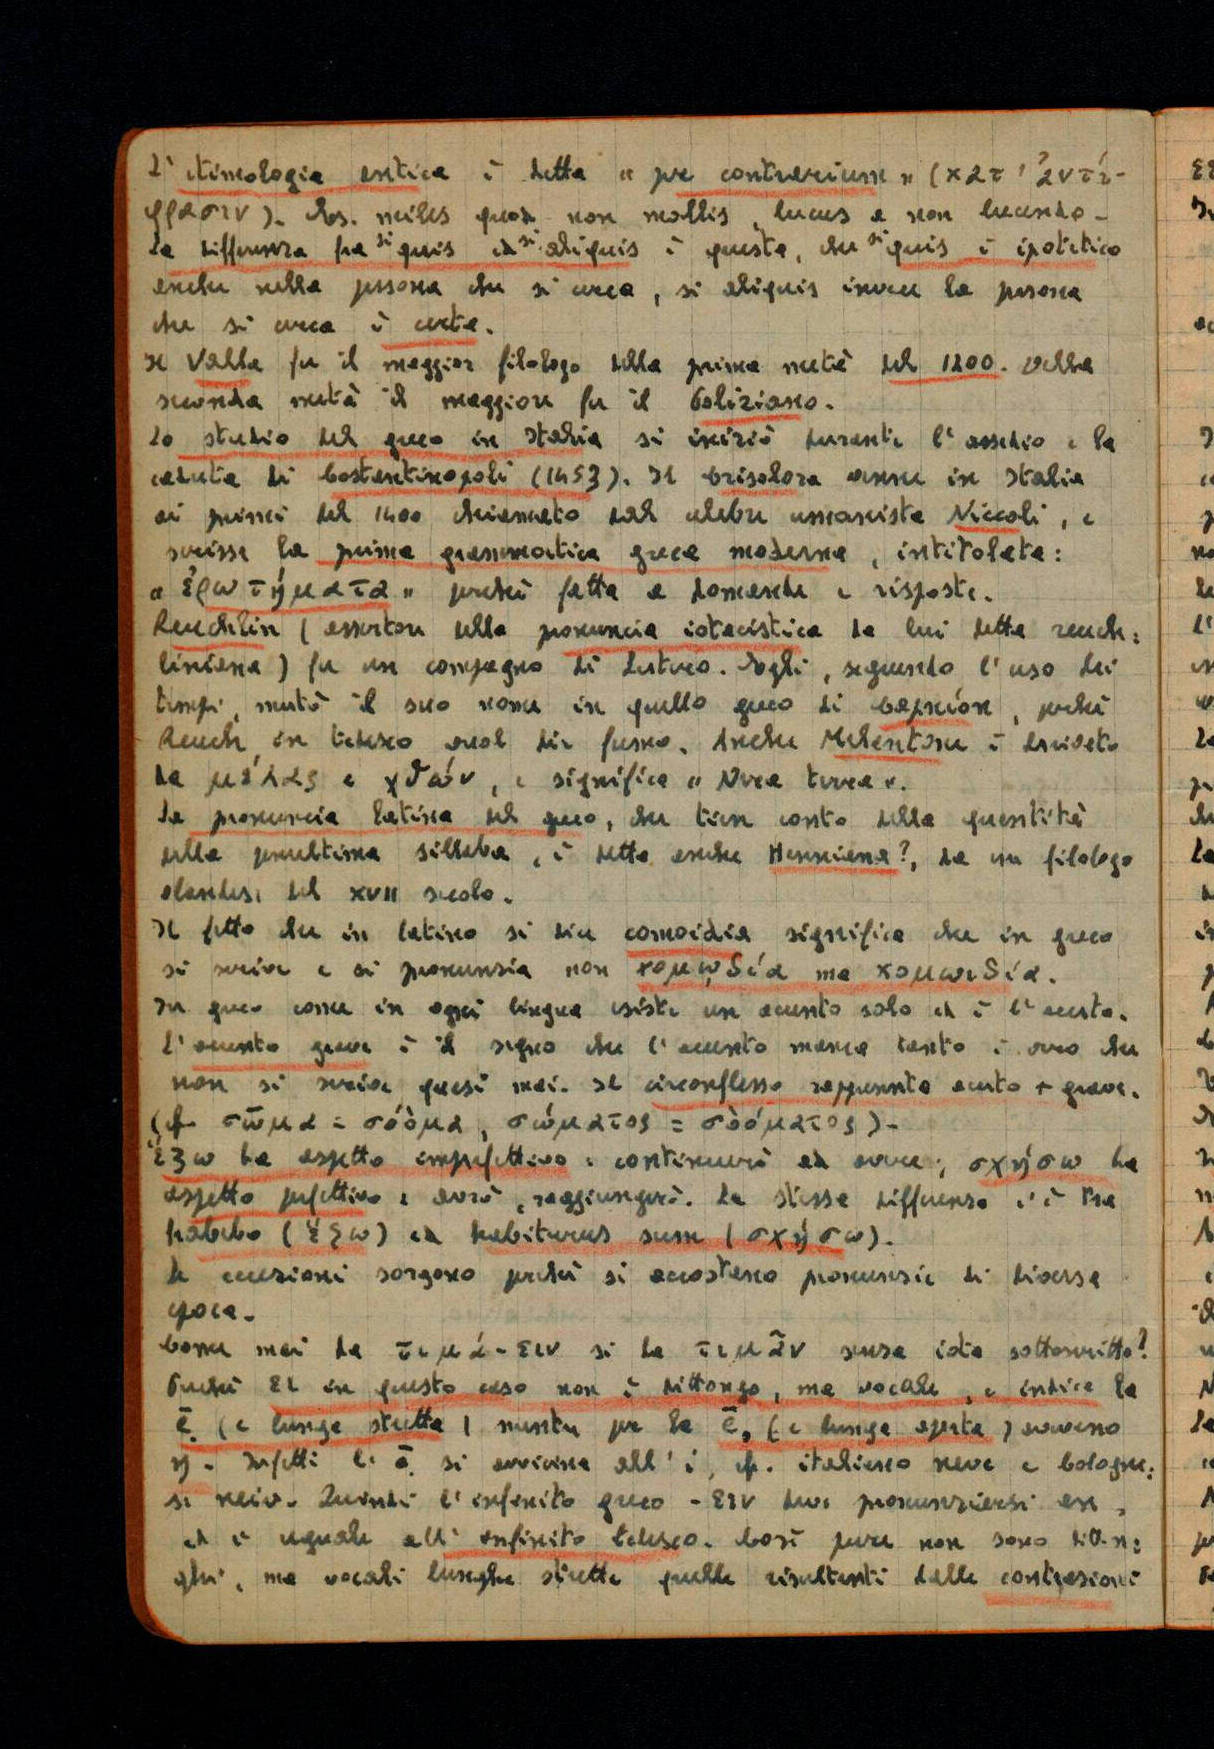 L'etimologia antica è detta « per contrarium » (κατ' ἀντί-
φρασιν). Es. miles quod non mollis, lucus a non lucendo.
La differenza fra si quis ed si aliquis è questa, che si quis è ipotetico
anche nella persona che si cerca, si aliquis invece la persona
che si cerca è certa.
Il Valla fu il maggior filologo della prima metà del 1400. Nella
seconda metà il maggiore fu il Poliziano.
Lo studio del greco in Italia si iniziò durante l'assedio e la
caduta di Costantinopoli (1453). Il Crisolora venne in Italia
ai primi del 1400 chiamato dal celebre umanista Niccoli, e
scrisse la prima grammatica greca moderna, intitolata:
« ἐρωτήματα » perché fatta a domande e risposte.
Reuchlin (assertore della pronuncia iotacistica da lui detta reuch=
liniana) fu un compagno di Lutero. Egli, seguendo l'uso dei
tempi, mutò il suo nome in quello greco di Capnion, perché
Reuch in tedesco vuol dir fumo. Anche Melantone è derivato
da μέλας e χθών, e significa « Nera terra ».
La pronuncia latina del greco, che tien conto della quantità
della penultima sillaba, è detta anche Henniana?, da un filologo
olandese del XVII secolo.
Il fatto che in latino si dice comoidia significa che in greco
si scrive e si pronunzia non κομῳδία ma κομωιδία.
In greco come in ogni lingua esiste un accento solo ed è l'acuto.
L'accento grave è il segno che l'accento manca tanto è vero che
non si scrive quasi mai. Il circonflesso rappresenta acuto + grave.
(cfr. σῶμα = σόὸμα, σώματος = σὸόματος).
Ἕξω ha aspetto imperfettivo: continuerò ad avere; σχήσω ha
aspetto perfettivo: avrò, raggiungerò. La stessa differenza c'è tra
habebo (ἕξω) ed habiturus sum (σχήσω).
Le eccezioni sorgono perché si accostano pronunzie di diversa
epoca.
Come mai da τιμά-ειν si ha τιμᾶν senza iota sottoscritto?
Perché ει in questo caso non è dittongo, ma vocale, e indica la
ẹ̄ (e lunga stretta) mentre per la ę̄ (e lunga aperta) avevano
η. Infatti l'ẹ̄ si avvicina all'i, cfr. italiano neve e bologne=
se neiv. Quindi l'infinito greco -ειν deve pronunziarsi en,
ed è uguale all'infinito tedesco. Così pure non sono ditton=
ghi, ma vocali lunghe strette quelle risultanti dalle contrazioni